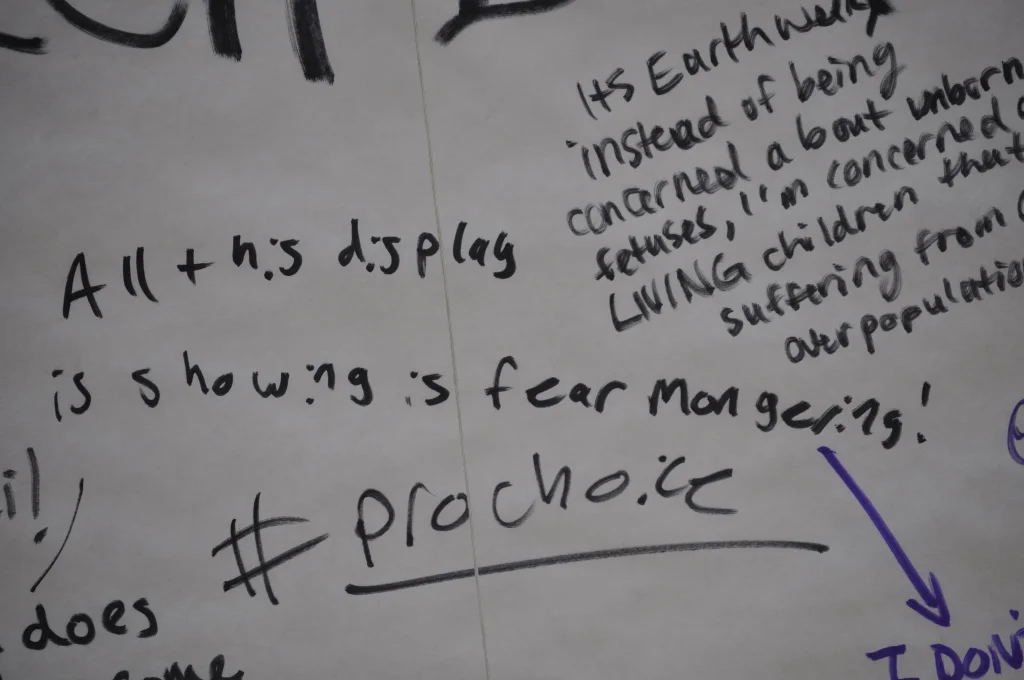 Its Earth week
instead of being
concerned about unborn
fetuses, I'm concerned
LIVING children that
suffering from
overpopulatio
All this display
is showing is fear mongering!
#prochoice
does
I DON